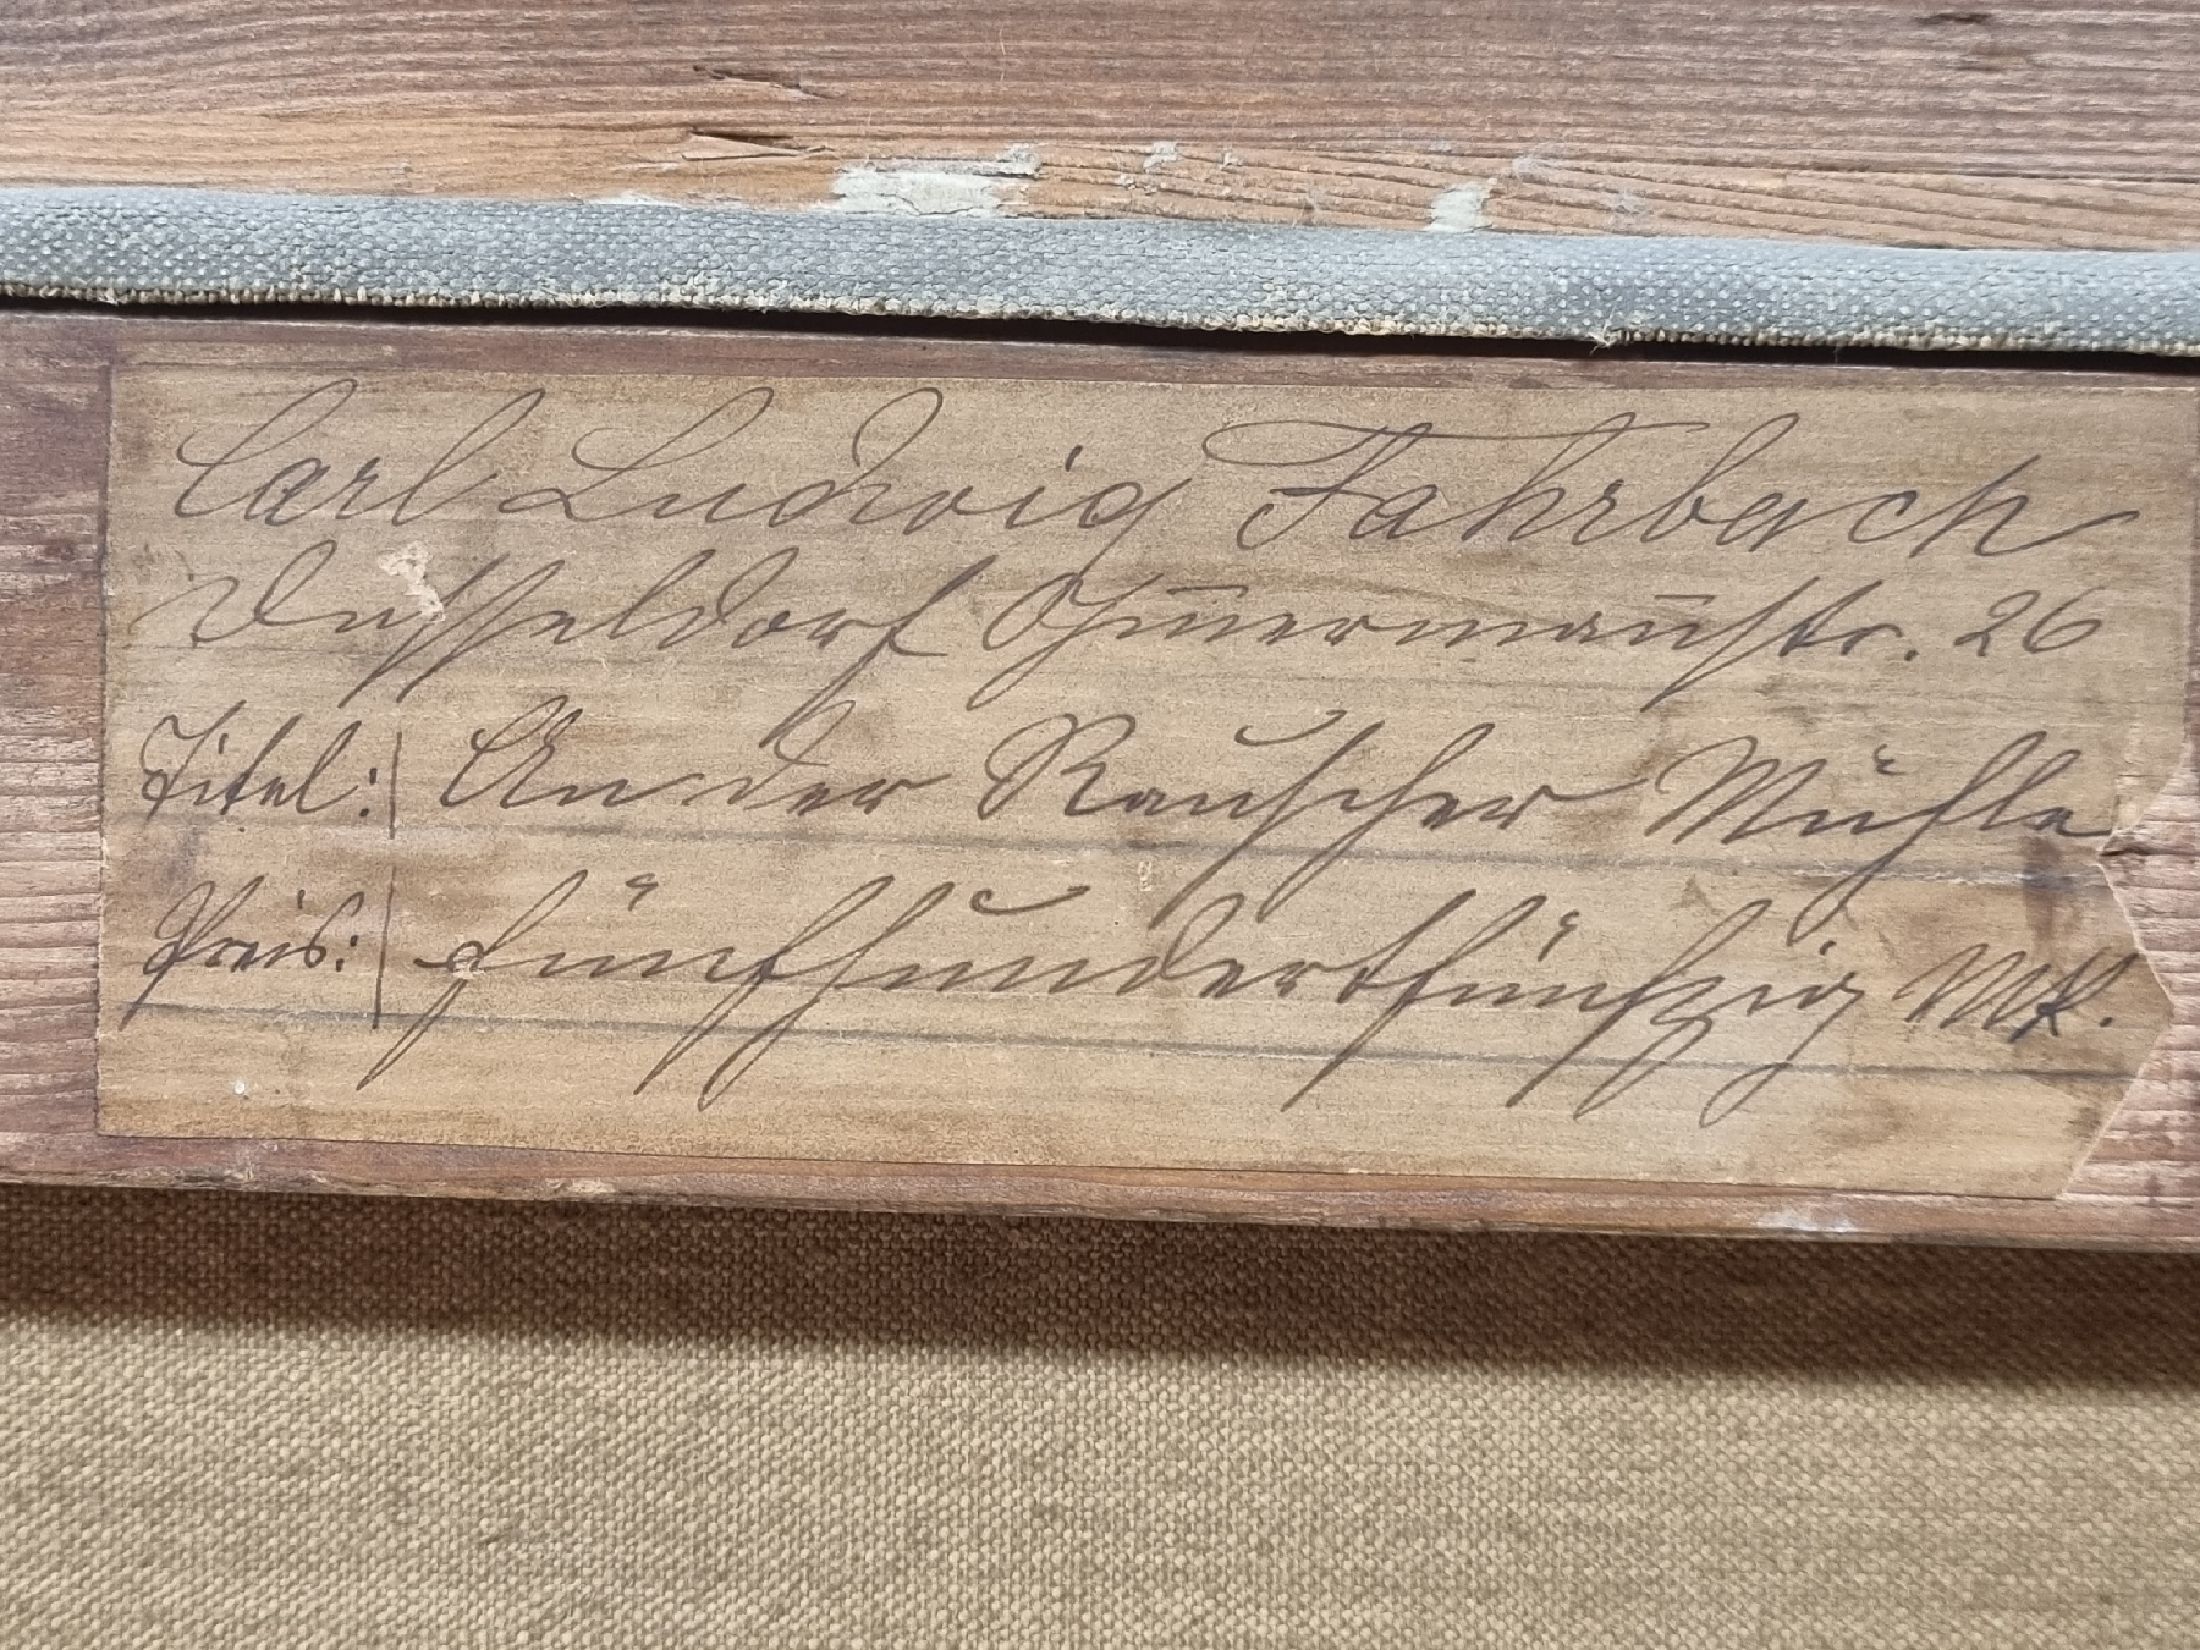 Carl Ludwig Fahrbach
Düsseldorf Im̄erman̄str. 26
Titel: An der Rauscher Mühle
Preis: Fünfhundertfünfzig Mk.